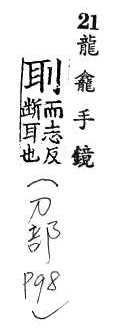 21
龍龕手鏡
刵而志反
断耳也
(刀部
P98)